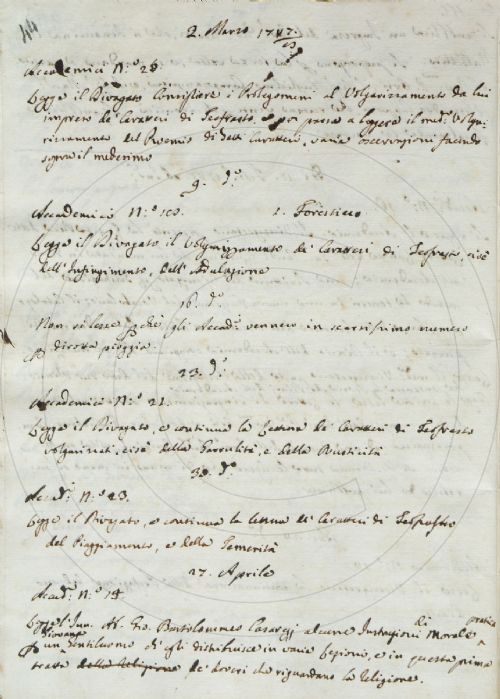 44
2. Marzo 1747.
Accademici N.º 28.
Legge il Divagato Consigliere i Prolegomeni al Volgarizzamento da lui
impreso de' Caratteri di Teofrasto, e poi passa a leggere il med.º Volga-
rizzamento del Proemio di detti Caratteri, varie osservazioni facendo
sopra il medesimo
9. d.º
Accademici N.º 1. Forestiero
Legge il Divagato il Volgarizzamento de' Caratteri di Teofrasto, cioè
dell' Infingimento, dell' Adulazione
16. d.º
Non si lesse p chè gli Accad.i vennero in scarsissimo numero
p dirotta pioggia.
23. d.º
Accademici N.º 21.
Legge il Divagato, e continua la lettura de' Caratteri di Teofrasto
volgarizzati, cioè della Garrulità, e della Rusticità
30. d.º
Acad.i N.º 23.
Legge il Divagato, e continua la lettura de' Caratteri di Teofrasto
del Piaggiamento, e della Temerità
27. Aprile
Acad.i N.º 18
Legge l' Ab. Gio. Bartolommeo Casaregj alcune Instruzioni di Morale pratica
p un Giovane Gentiluomo di egli distribuisce in varie lezioni, e in questa prima
tratta della Religione de' doveri che riguardano la Religione.